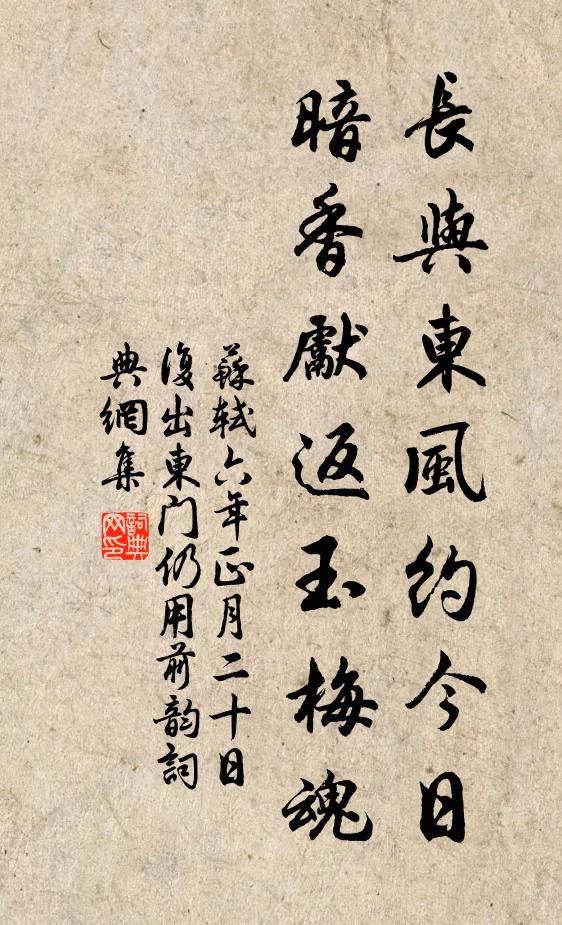 長與東風約今日
暗香獻返玉梅魂
蘇軾六年正月二十日
復出東门仍用前韵詞
典網集
詞典
网印